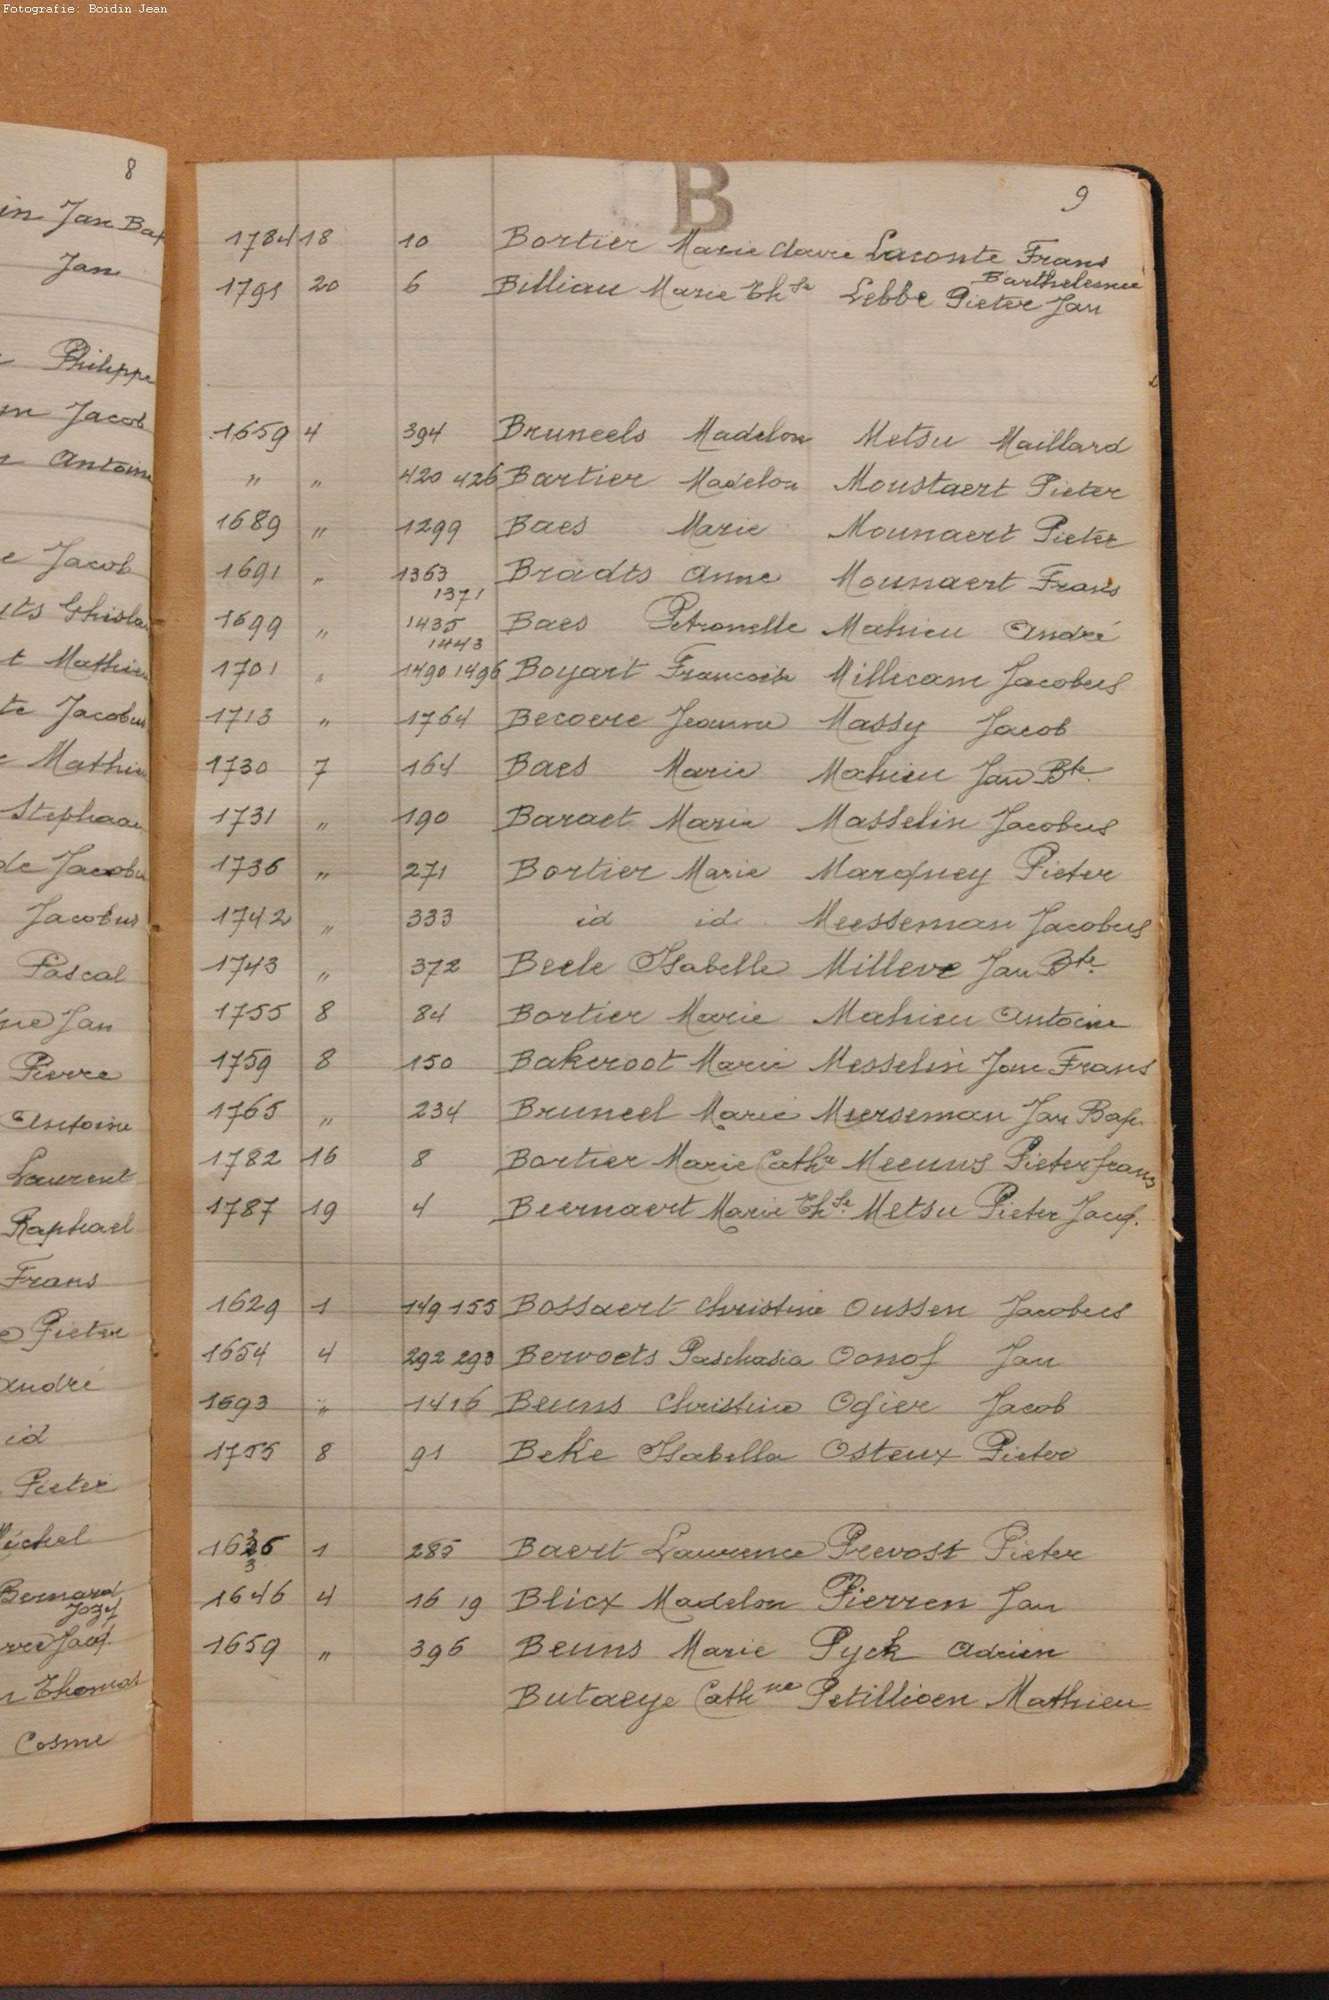 Fotografie: Boidin Jean
8
Jan Bap
Jan
Philippe
Jacob
Antoine
Jacob
Ghisla
Mathieu
Jacobus
Mathieu
Stephaan
de Jacobu
Jacobus
Pascal
Jan
Pierre
Antoine
Laurent
Raphael
Frans
Pieter
André
id
Pieter
Michel
Bernard
Jozef
Jacq.
Thomas
Cosme
B
9
1784 18 10 Bortier Marie Claire Laconte Frans
Barthelemie
1791 20 6 Billiau Marie Thse Lebbe Pieter Jan
1659 4 394 Bruneels Madelon Metsu Maillard
" " 420 426 Bartier Madelon Moustaert Pieter
1689 " 1299 Baes Marie Mounaert Pieter
1691 " 1363 Bradts Anne Mounaert Frans
1371
1699 " 1435 Baes Petronelle Mahieu André
1443
1701 " 1490 1496 Boyart Francoise Millecam Jacobus
1713 " 1764 Becoere Jeanne Massy Jacob
1730 7 164 Baes Marie Mahieu Jan Bte
1731 " 190 Baraet Marie Masselin Jacobus
1736 " 271 Bortier Marie Marquey Pieter
1742 " 333 id id Meesseman Jacobus
1743 " 372 Beele Isabelle Milleve Jan Bte
1755 8 84 Bortier Marie Mahieu Antoine
1759 8 150 Bakeroot Marie Messelin Jan Frans
1765 " 234 Bruneel Marie Murseman Jan Bap.
1782 16 8 Bortier Marie Cathe Meeuws Pieter frans
1787 19 4 Beernaert Marie Thse Metsu Pieter Jacq.
1629 1 149 155 Bossaert Christine Oussen Jacobus
1654 4 292 293 Bervoets Paschasia Oonof Jan
1693 " 1416 Beuns Christine Ogier Jacob
1755 8 91 Beke Isabella Osteux Pieter
1636 1 285 Baert Laurence Prevost Pieter
1646 4 16 19 Blicx Madelon Pierren Jan
1659 " 396 Beuns Marie Pyck Adrien
Butaeye Cathne Petillioen Mathieu